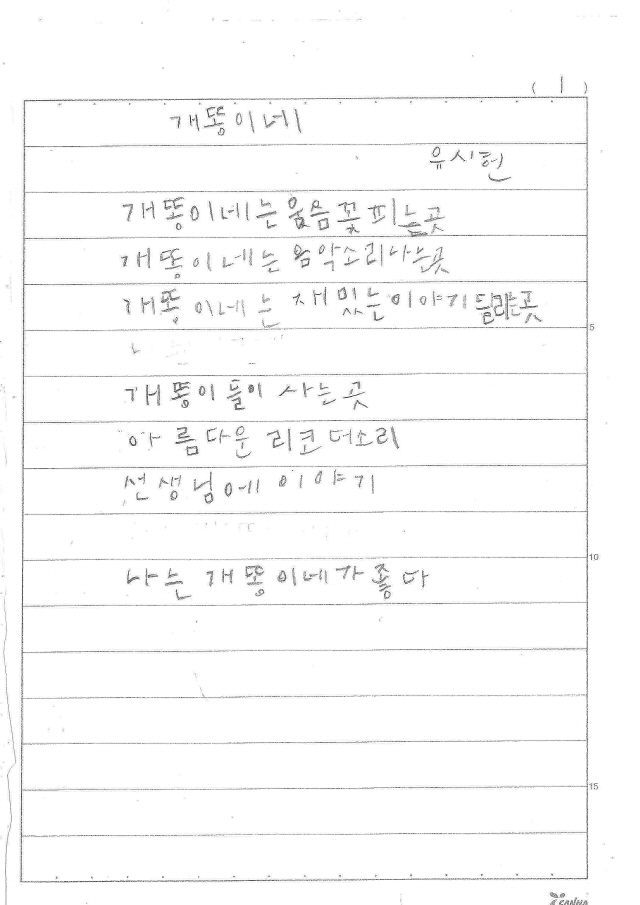 ( 1 )
개똥이네
유시헌
개똥이네는 웂음꽃 피는곳
개똥이네는 음악소리나는곳
개똥이네는 재밌는이야기 들리는곳
5
개똥이들이 사는곳
아름다운 리코더소리
선생님에 이야기
10
나는 개똥이네가 좋다
15